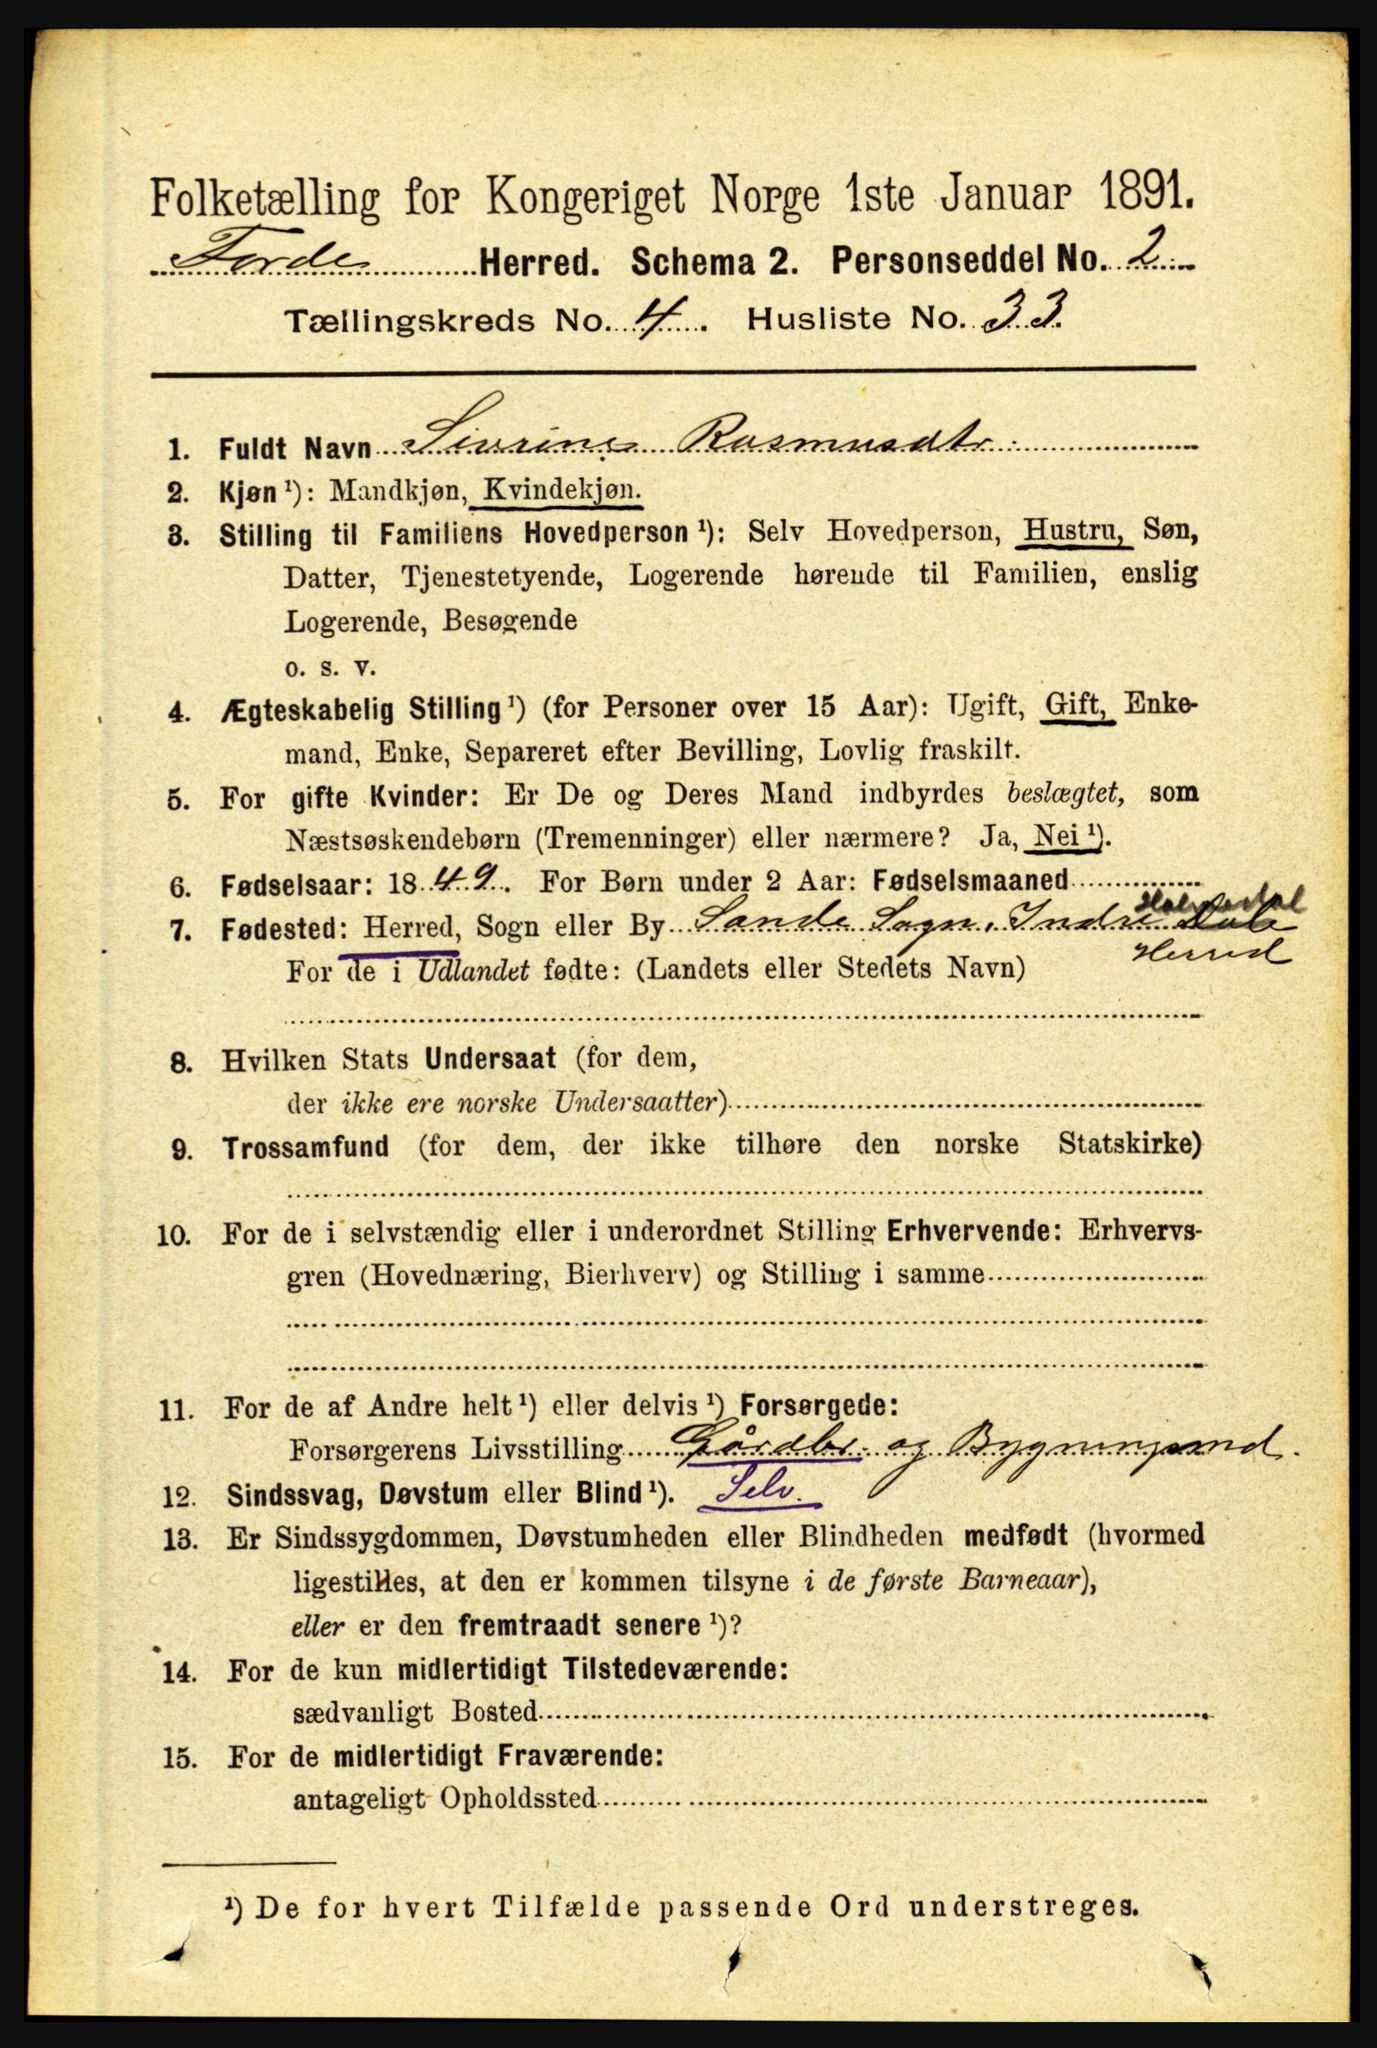 Folketælling for Kongeriget Norge 1ste Januar 1891.
Førde Herred. Schema 2. Personseddel No. 2
Tællingskreds No. 4. Husliste No. 33.
1. Fuldt Navn Sivrine Rasmusdtr.
2. Kjøn ¹): Mandkjøn, Kvindekjøn.
3. Stilling til Familiens Hovedperson ¹): Selv Hovedperson, Hustru, Søn,
Datter, Tjenestetyende, Logerende hørende til Familien, enslig
Logerende, Besøgende
o. s. v.
4. Ægteskabelig Stilling ¹) (for Personer over 15 Aar): Ugift, Gift, Enke-
mand, Enke, Separeret efter Bevilling, Lovlig fraskilt.
5. For gifte Kvinder: Er De og Deres Mand indbyrdes beslægtet, som
Næstsøskendebørn (Tremenninger) eller nærmere? Ja, Nei ¹).
6. Fødselsaar: 1849. For Børn under 2 Aar: Fødselsmaaned
7. Fødested: Herred, Sogn eller By Sande Sogn, Indre
Herred
For de i Udlandet fødte: (Landets eller Stedets Navn)
8. Hvilken Stats Undersaat (for dem,
der ikke ere norske Undersaatter)
9. Trossamfund (for dem, der ikke tilhøre den norske Statskirke)
10. For de i selvstændig eller i underordnet Stilling Erhvervende: Erhvervs-
gren (Hovednæring, Bierhverv) og Stilling i samme
11. For de af Andre helt ¹) eller delvis ¹) Forsørgede:
Forsørgerens Livsstilling Gårdbr. og Bygningsmd.
12. Sindssvag, Døvstum eller Blind ¹). Selv.
13. Er Sindssygdommen, Døvstumheden eller Blindheden medfødt (hvormed
ligestilles, at den er kommen tilsyne i de første Barneaar),
eller er den fremtraadt senere ¹)?
14. For de kun midlertidigt Tilstedeværende:
sædvanligt Bosted
15. For de midlertidigt Fraværende:
antageligt Opholdssted
¹) De for hvert Tilfælde passende Ord understreges.